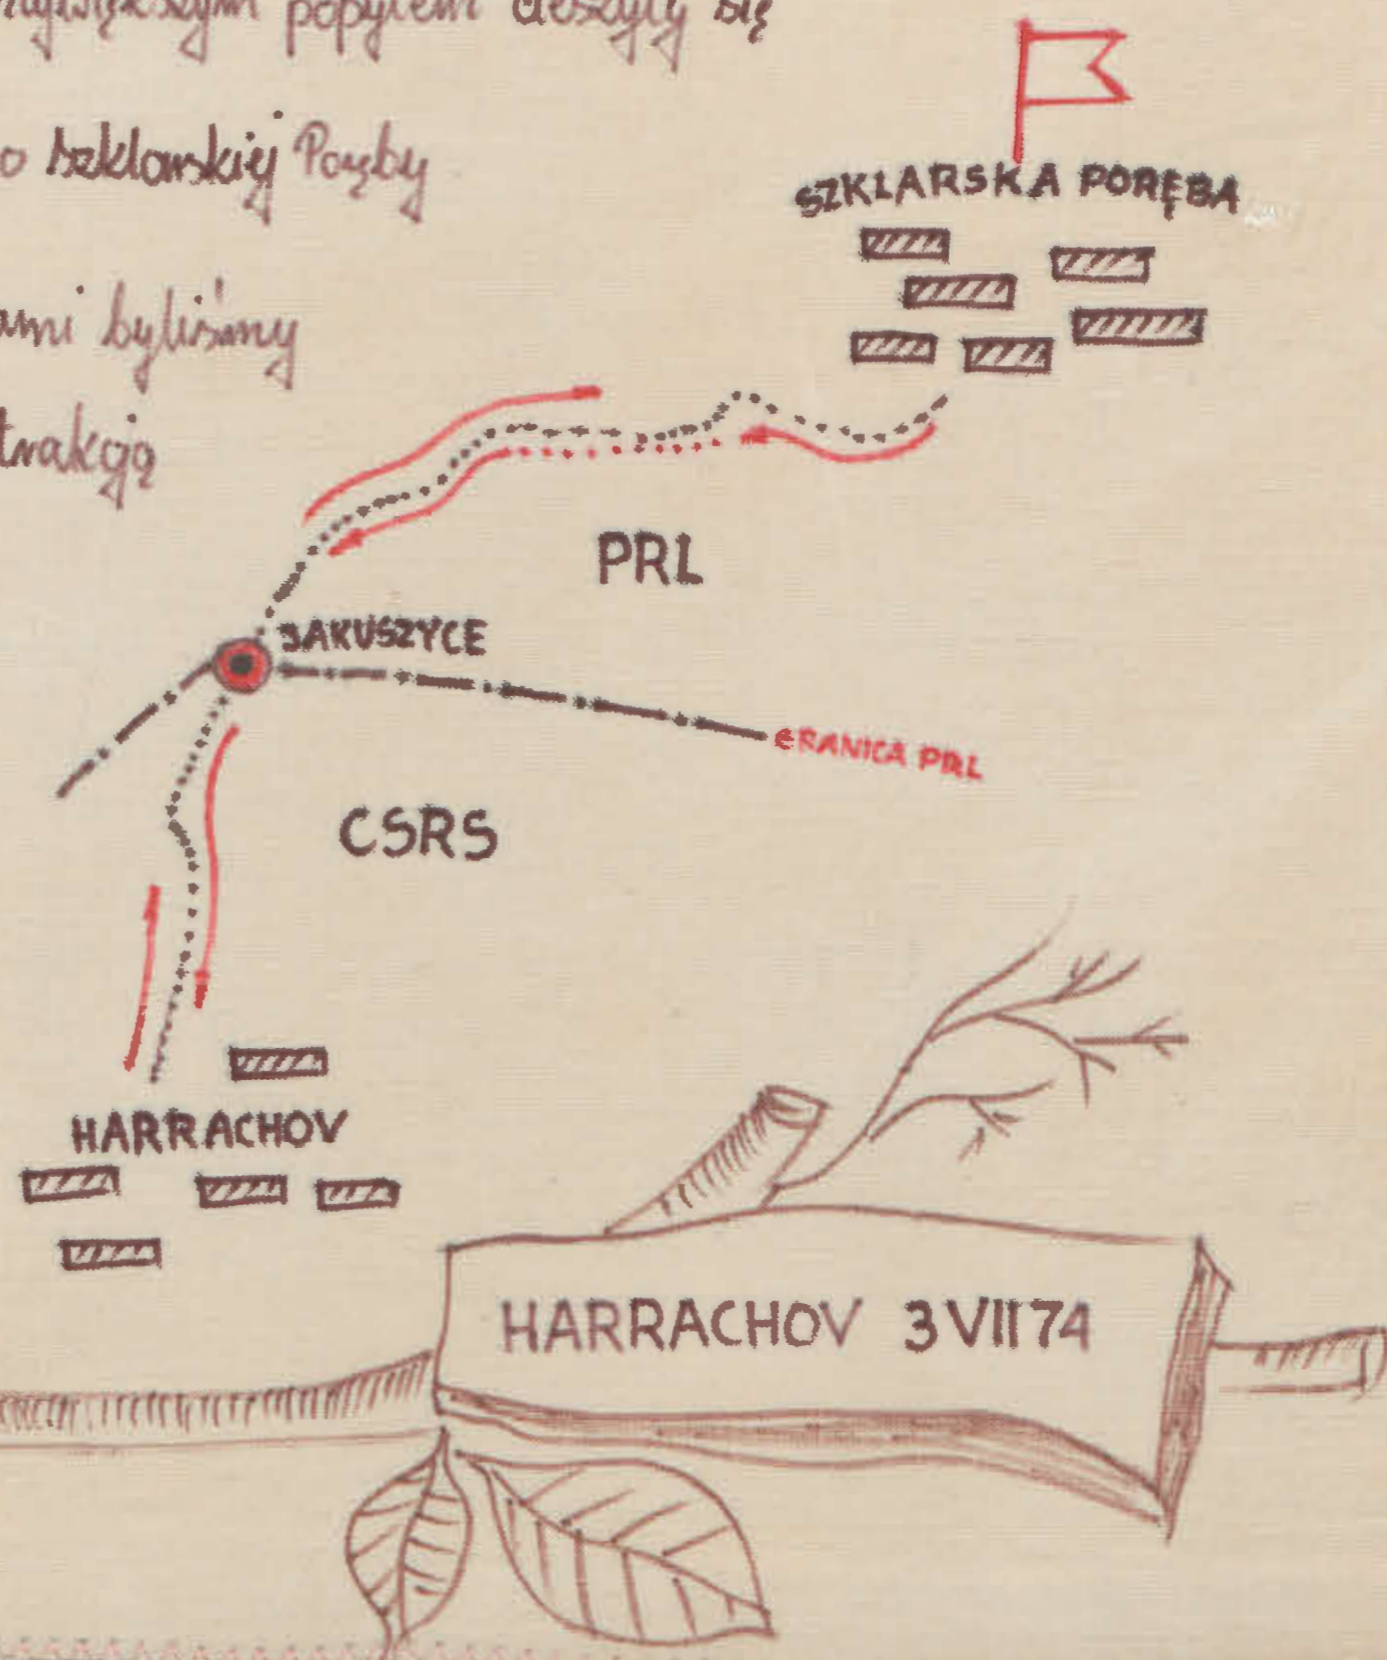 największym popytem cieszyły się
o szklarskiej Poręby
ami byliśmy
trakcją
SZKLARSKA PORĘBA
PRL
JAKUSZYCE
GRANICA PRL
CSRS
HARRACHOV
HARRACHOV 3 VII 74